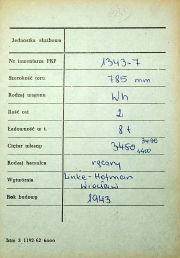 Jednostka służbowa
Nr inwentarza PKP 1343-7
Szerokość toru 785 mm
Rodzaj wagonu Wh
Ilość osi 2
Ładowność w t. 8 t
Ciężar własny 3450 3400 4400
Rodzaj hamulca ręczny
Wytwórnia Linke-Hofman Wrocław
Rok budowy 1943